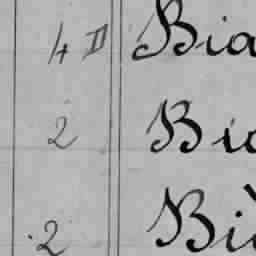 4 II Bia
2 Bia
2 Biè